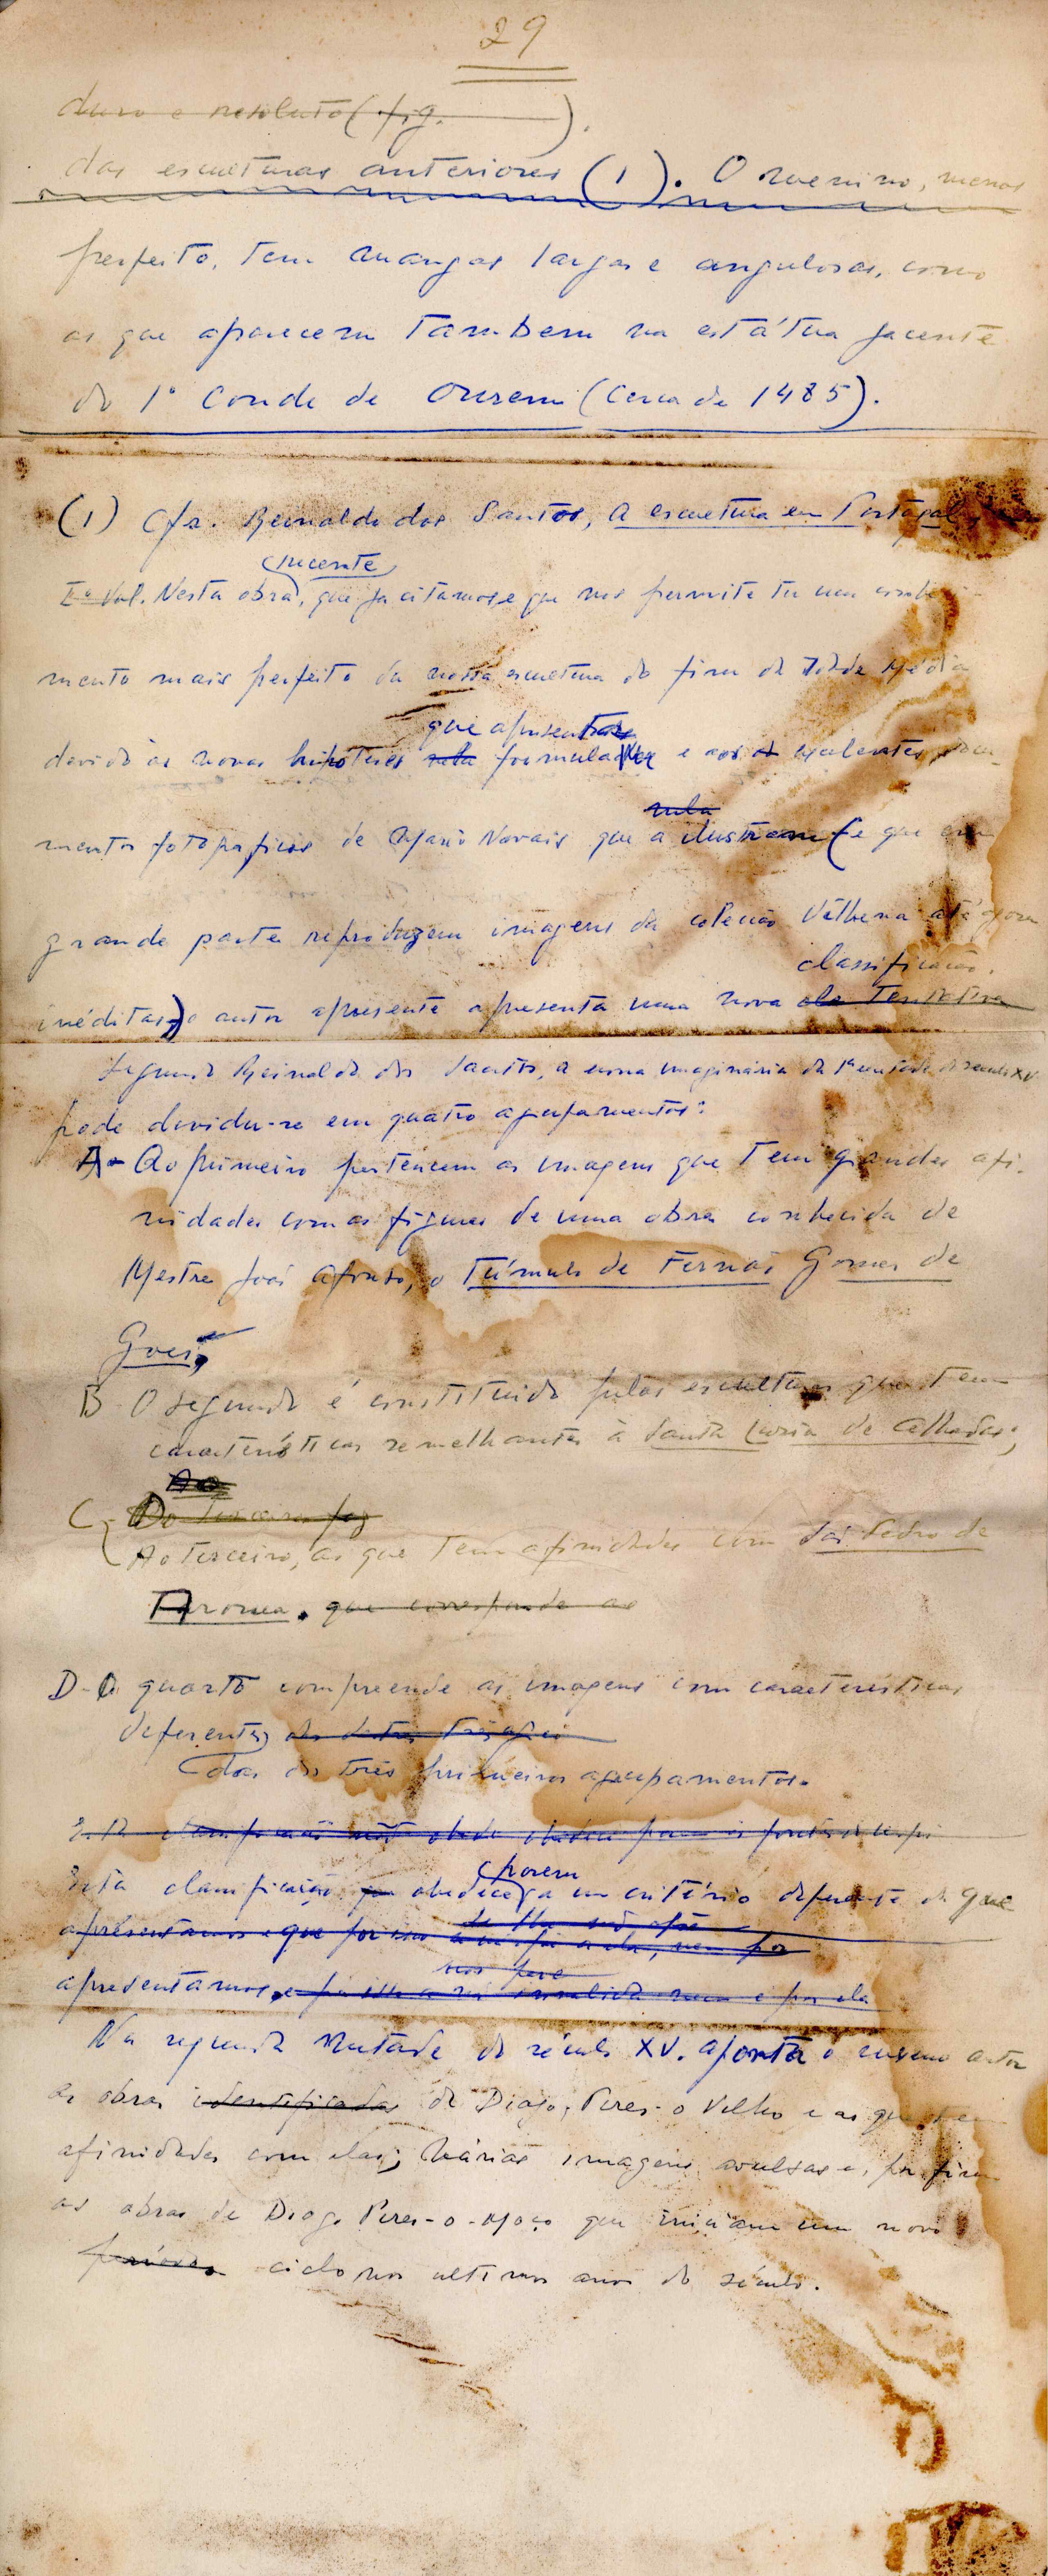 29
duro e resoluto (fig. ).
das esculturas anteriores (1). O menino, menos
perfeito, tem mangas largas e angulosas, como
as que aparecem tambem na estátua jacente
do 1º Conde de Ourem (cerca de 1485).
(1) Cfr. Reinaldo dos Santos, A escultura em Portugal,
recente
Iº Vol. Nesta obra, que já citamos e que nos permite ter um conheci-
mento mais perfeito da nossa escultura do fim da Idade Média
que apresenta
devido às novas hipóteses nela formuladas e aos excelentes docu-
nela
mentos fotográficos de Mário Novais que a ilustram (e que em
grande parte reproduzem imagens da coleção Vilhena até agora
classificação.
inéditas) o autor apresenta uma nova
Segundo Reinaldo dos Santos, a nossa imaginária da 1ª metade do século XV
pode dividir-se em quatro agrupamentos:
A- Ao primeiro pertencem as imagens que tem grandes afi-
nidades com as figuras de uma obra conhecida de
Mestre João Afonso, o Túmulo de Fernão Gomes de
Gois,
B O segundo é constituido pelas esculturas que tem
caracteristicas semelhantes à Santa Luzia de Alhadas;
Ao
C- Do terceiro faz
Ao terceiro, as que tem afinidades com São Pedro de
Arouca. que corresponde as
D- O quarto compreende as imagens com caracteristicas
deferentes
das dos três primeiros agrupamentos.
porem
Esta classificação obedece a um critério deferente do que
apresentamos e que por isso
apresentamos,
Na segunda metade do século XV. aponta o mesmo autor
as obras identificadas de Diogo Pires-o Velho e as que tem
afinidades com elas; várias imagens avulsas e, por fim
as obras de Diogo Pires-o-Moço que iniciam um novo
ciclo nos ultimos anos do século.